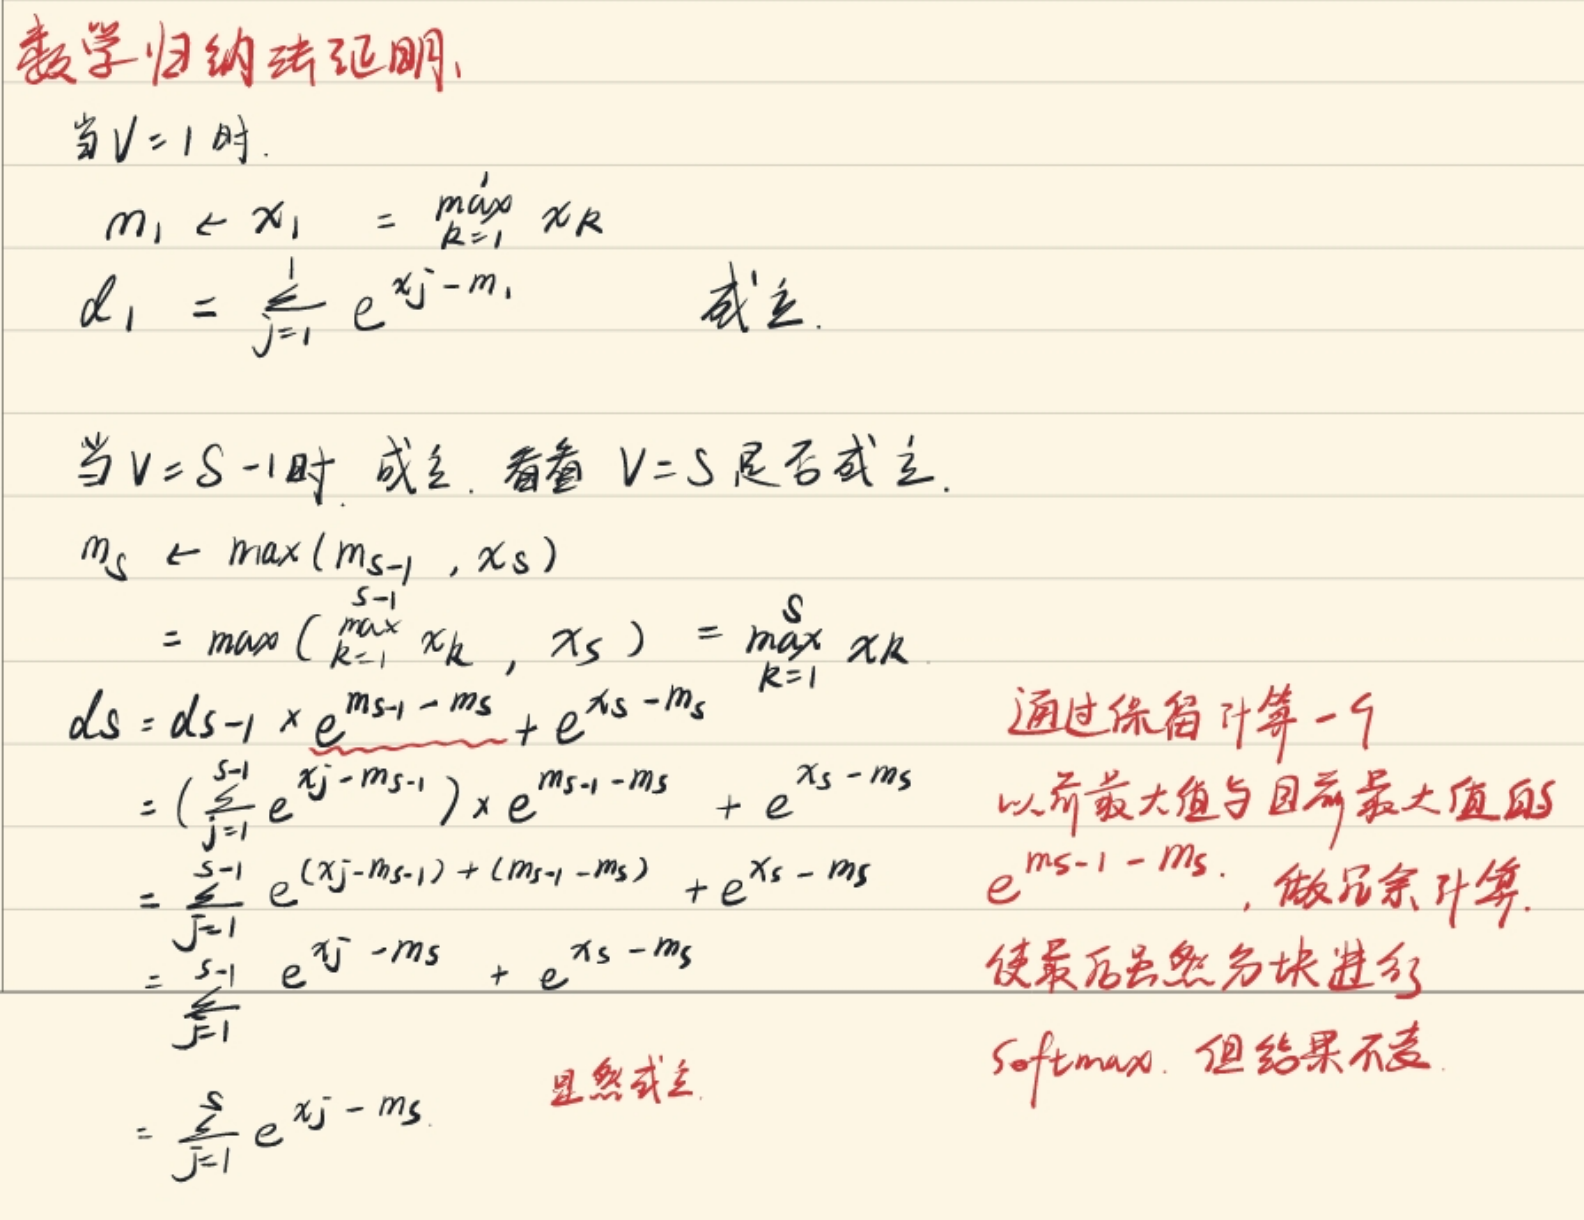 数学归纳法证明、
当V=1时.
m₁ ← x₁ = max_{k=1}^{1} x_k
d₁ = Σ_{j=1}^{1} e^{x_j-m₁} 成立.
当V=S-1时. 成立. 看看 V=S是否成立.
m_s ← max(m_{s-1}, x_s)
= max(max_{k=1}^{s-1} x_k, x_s) = max_{k=1}^{s} x_k.
d_s = d_{s-1} × e^{m_{s-1}-m_s} + e^{x_s-m_s}
= (Σ_{j=1}^{s-1} e^{x_j-m_{s-1}}) × e^{m_{s-1}-m_s} + e^{x_s-m_s}
= Σ_{j=1}^{s-1} e^{(x_j-m_{s-1})+(m_{s-1}-m_s)} + e^{x_s-m_s}
= Σ_{j=1}^{s-1} e^{x_j-m_s} + e^{x_s-m_s}
= Σ_{j=1}^{s} e^{x_j-m_s}.
显然成立.
通过保留计算一个
以前最大值与目前最大值的
e^{m_{s-1}-m_s}. , 做冗余计算.
使最后虽然分块进行
softmax. 但结果不变.